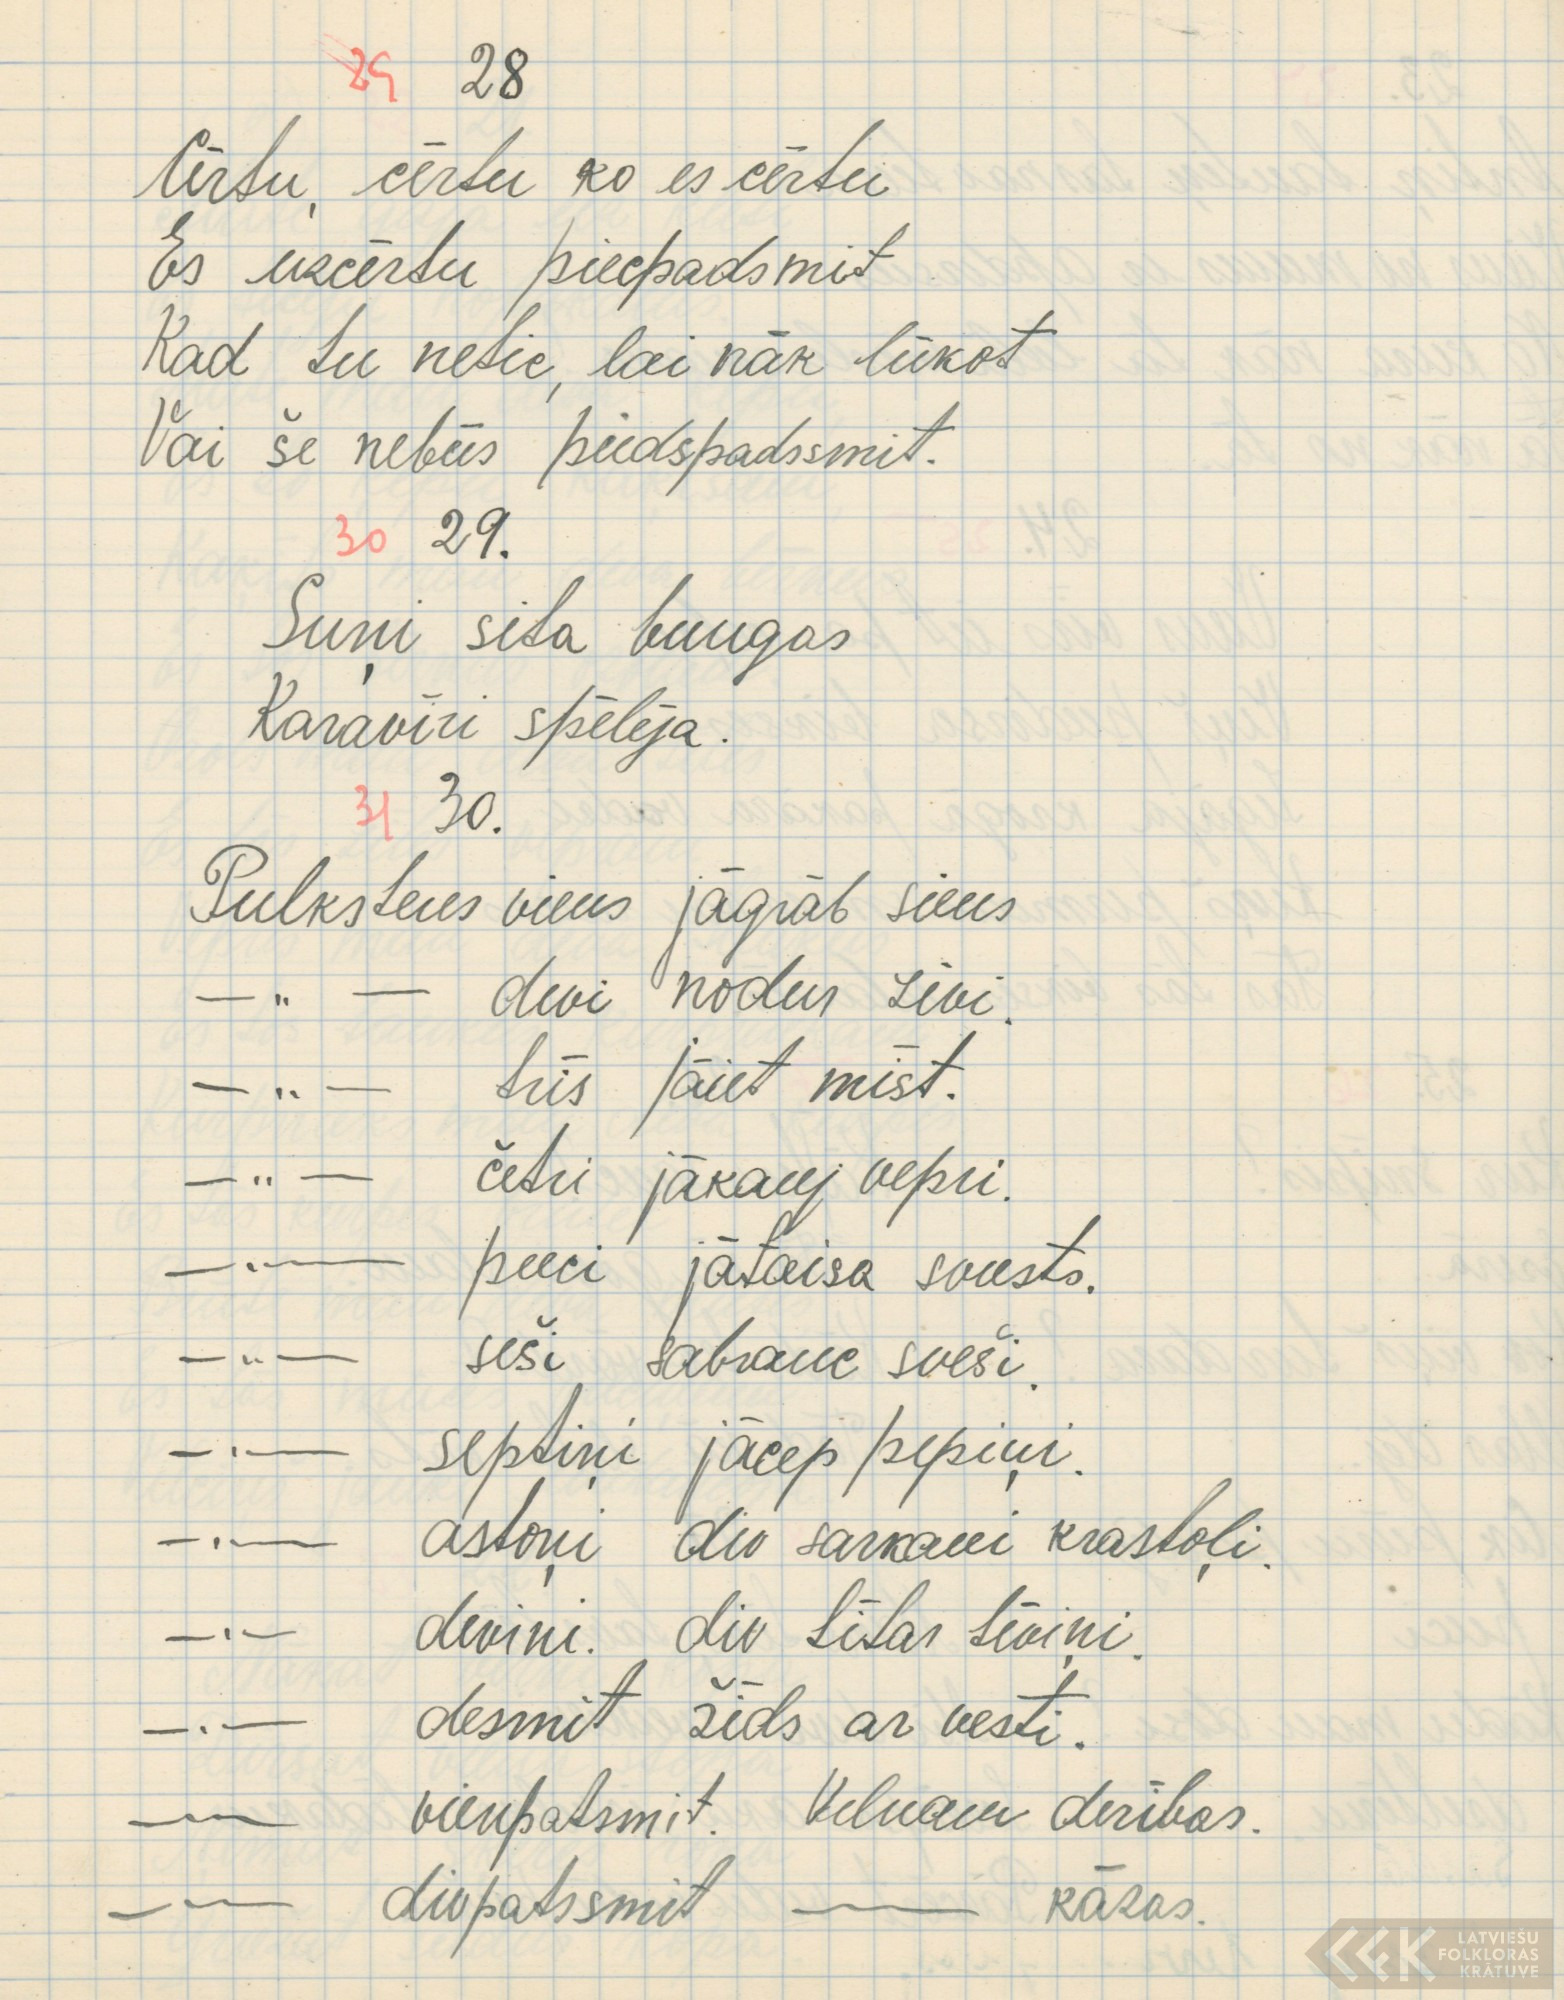 29 28
Cērtu, cērtu ko es cērtu
Es uzcērtu piecpadsmit
Kad tu netic, lai nāk lūkot
Vai še nebūs piedspadssmit.
30 29.
Suņi sita bungas
Karavīri spēlēja.
31 30.
Pulkstens viens jāgrāb siens
— " — divi nodur zivi.
— " — trīs jāiet mīst.
— " — četri jākauj vepri.
— " — pieci jātaisa sviests.
— " — seši sabrauc sveši.
— " — septiņi jācep pepiņi.
— " — astoņi div sarkani krastoļi.
— " — devini. div tītar tēviņi.
— " — desmit žīds ar vesti.
— — vienpatsmit. Velnam derības.
— — divpatssmit — kāzas.
LATVIEŠU
FOLKLORAS
KRĀTUVE